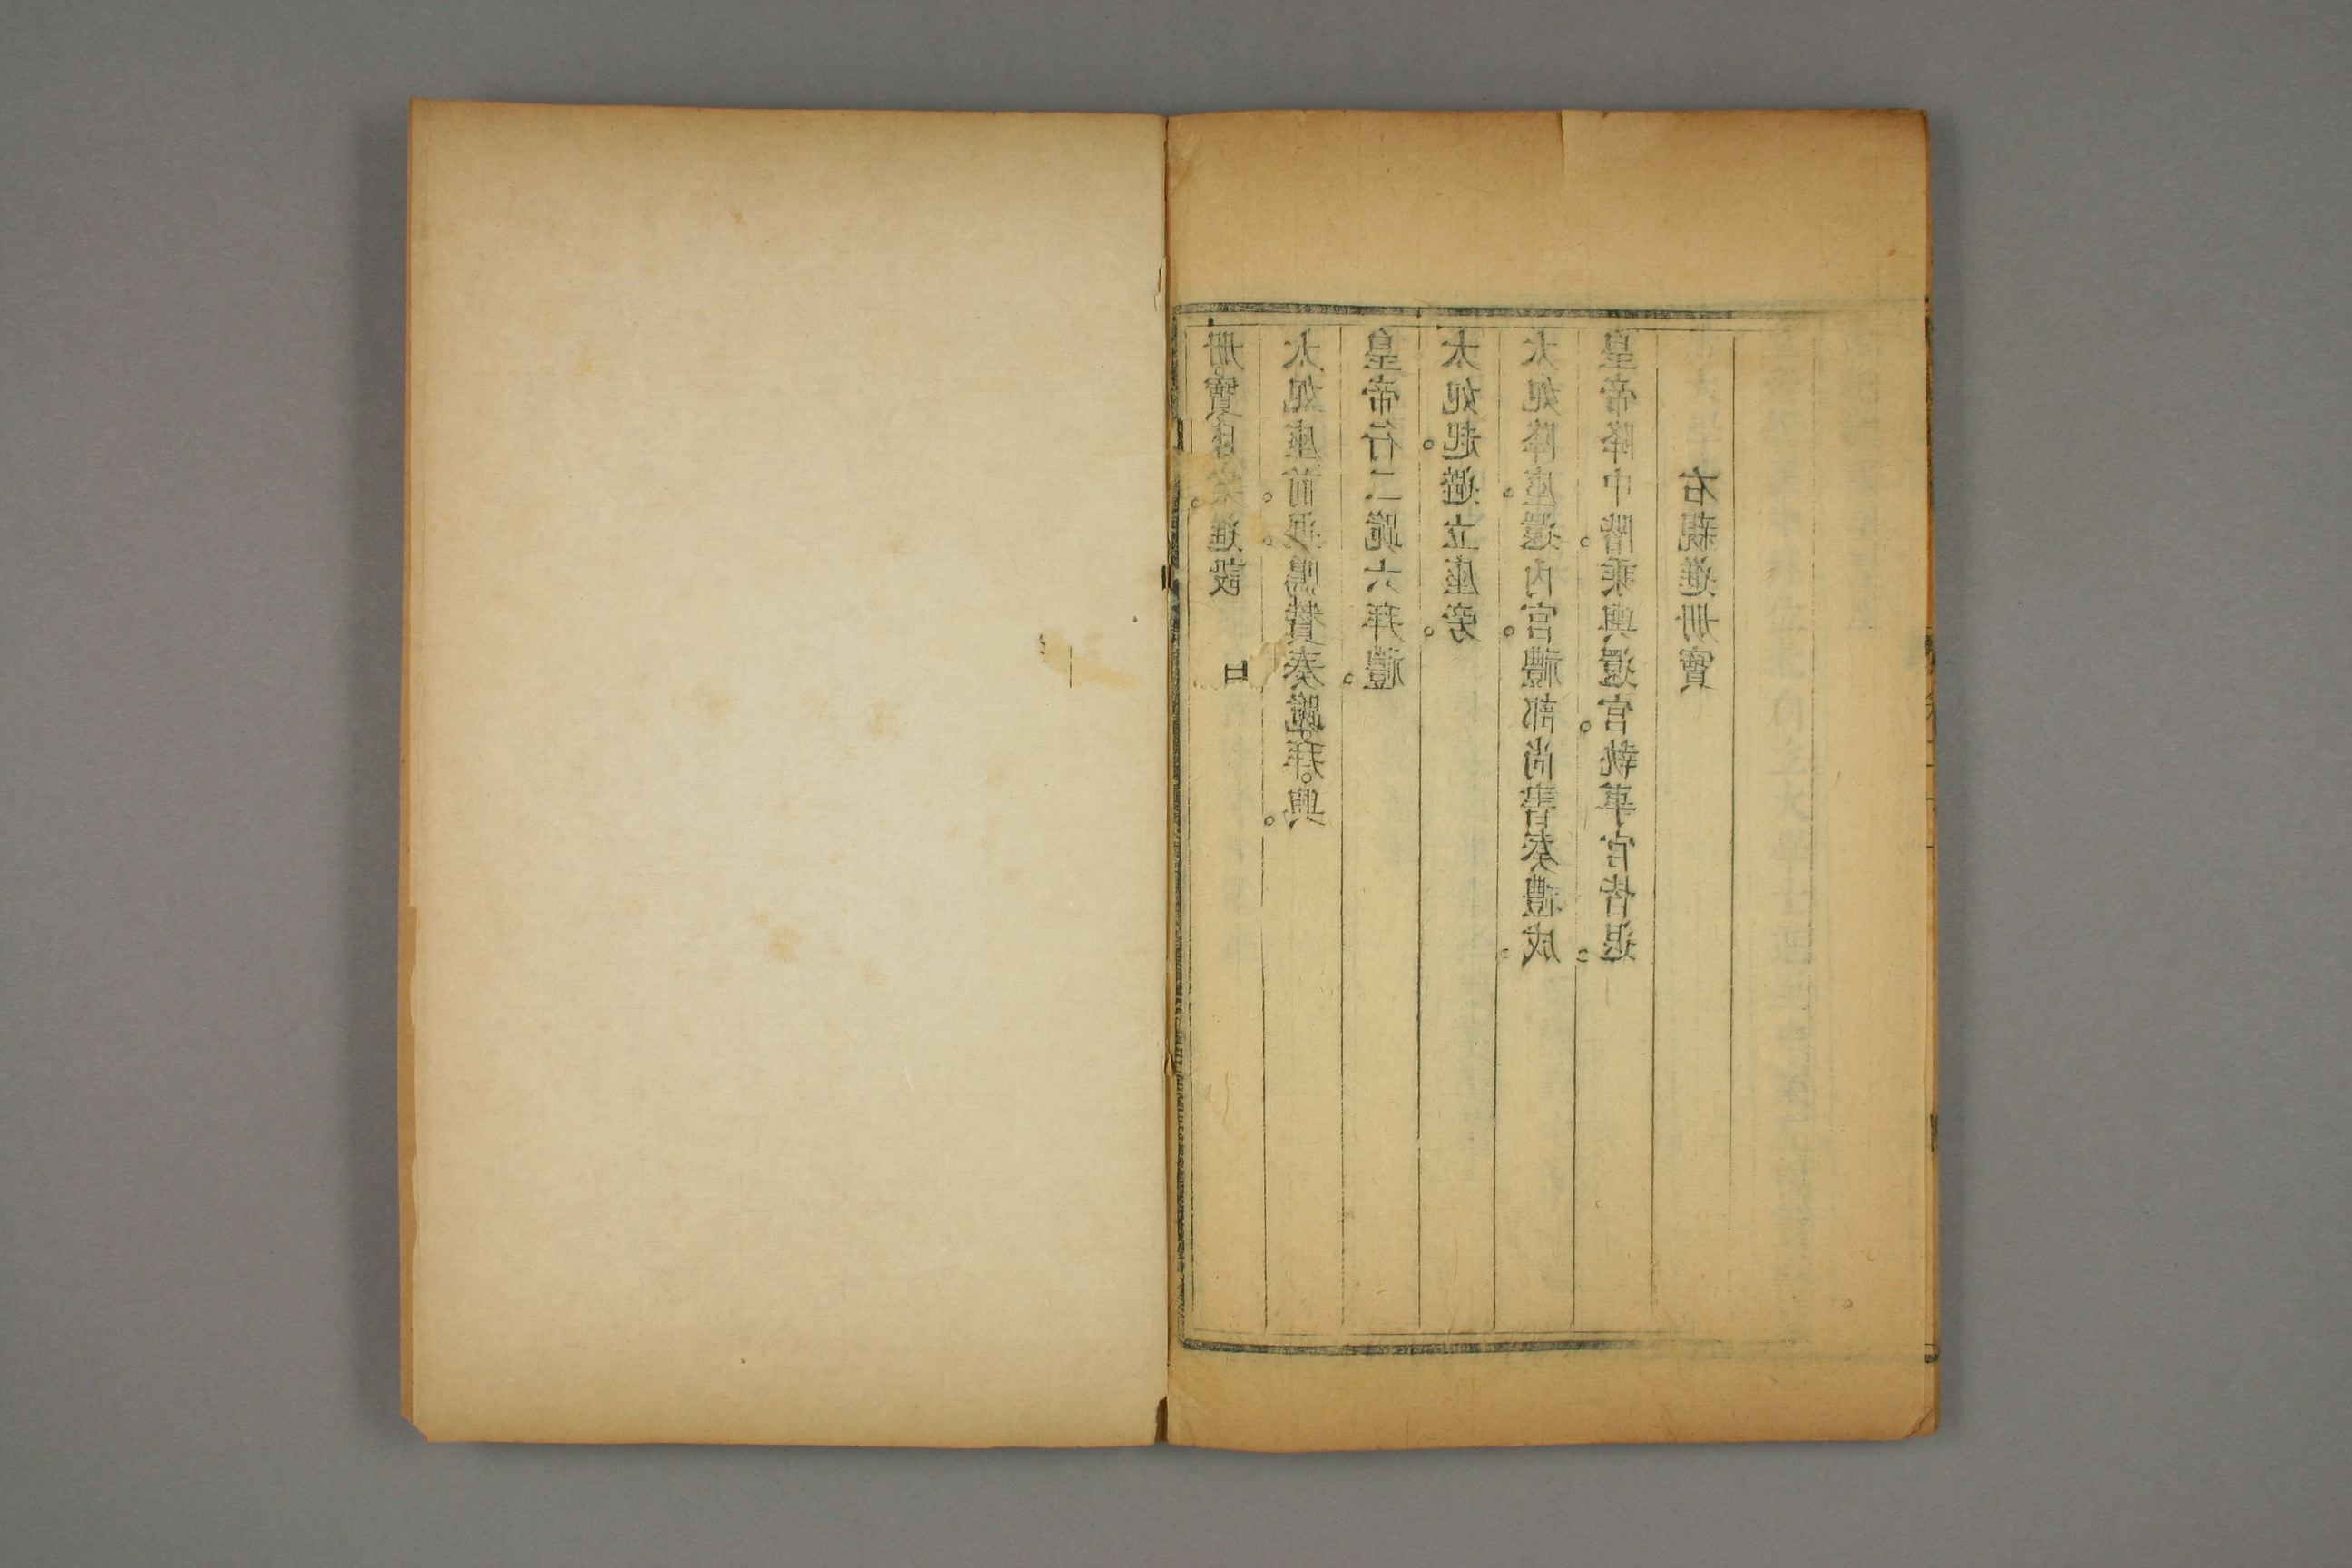 册。寶。進設
太妃座前。退。鳴贊奏跪。拜。興。
皇帝行二跪六拜禮。
太妃起。避立座旁。
太妃降座。還內宮。禮部尚書奏禮成。
皇帝降中階。乘輿還宮。執事官皆退。
右親進册寶